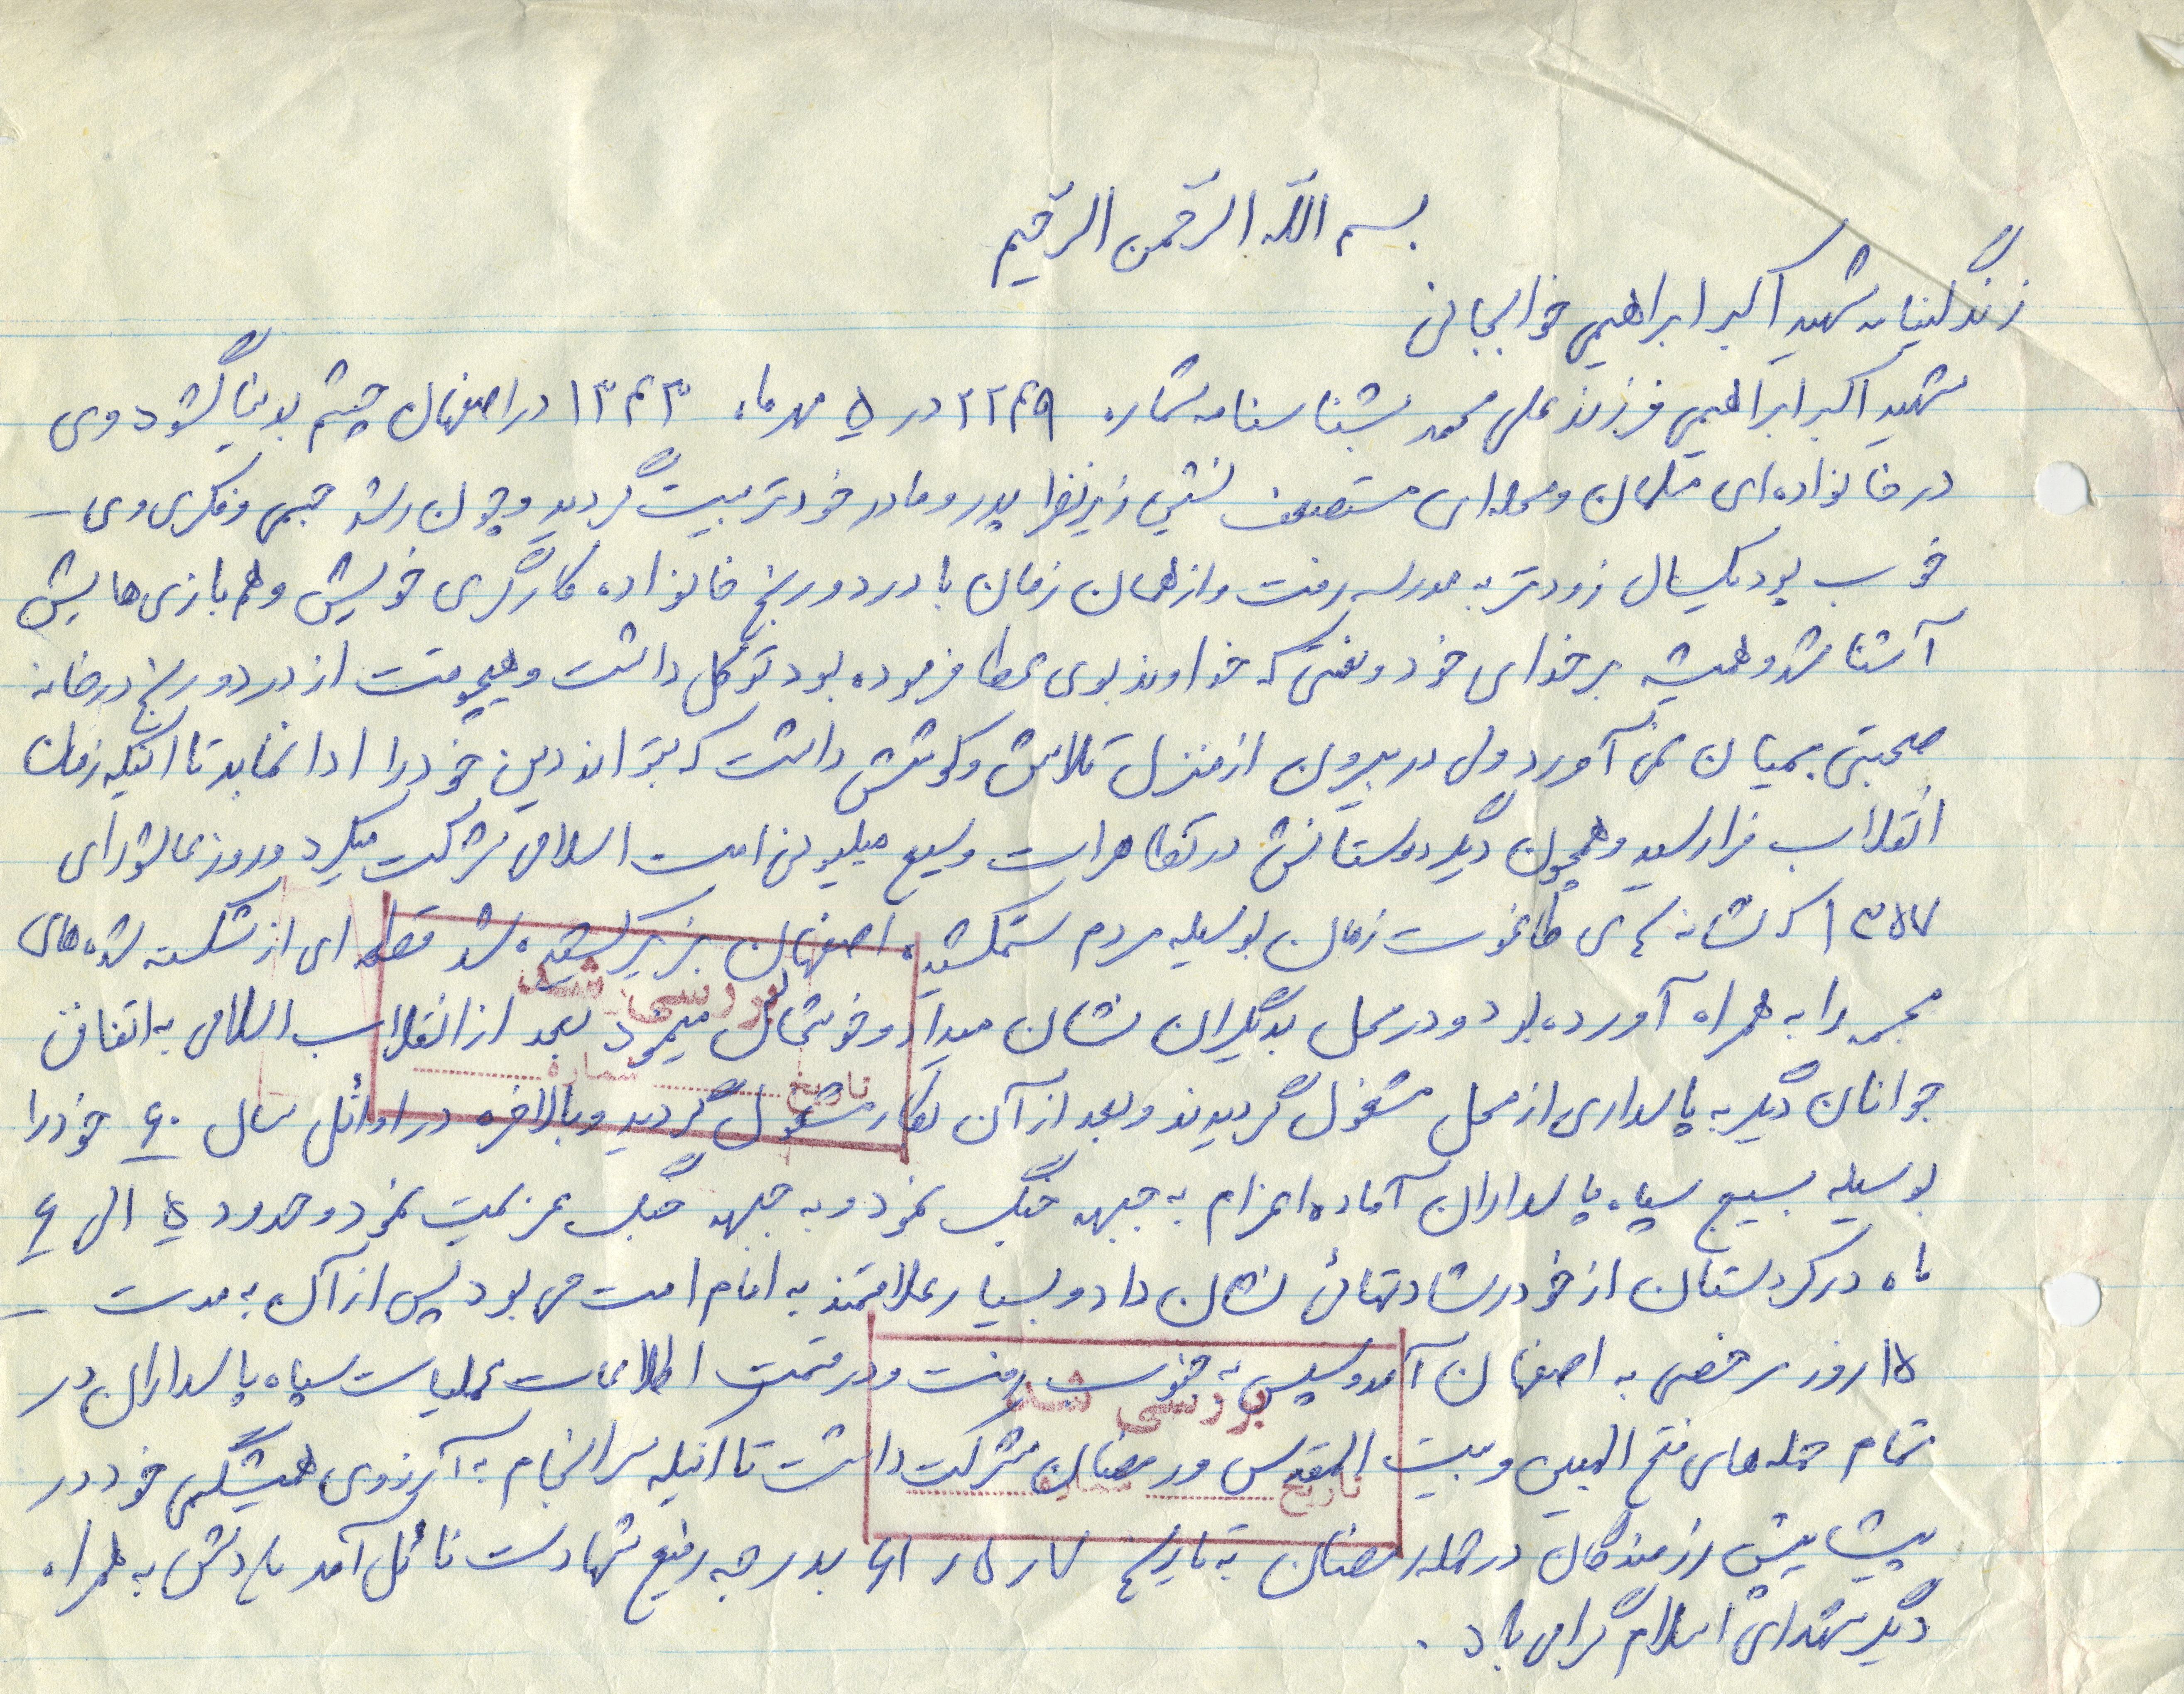 بسم الله الرحمن الرحیم
زندگینامه شهید اکبر ابراهیمی خوابجانی
شهید اکبر ابراهیمی فرزند علی محمد بشناسنامه شماره ۲۲۴۹ در ۵ مهرماه ۱۳۴۳ در اصفهان چشم بدنیا گشود وی
در خانواده‌ای مسلمان و محله‌ای مستضعف نشین زیر نظر پدر و مادر خود تربیت گردید و چون رشد جسمی و فکری وی –
خوب بود یکسال زودتر به مدرسه رفت و از همان زمان با درد و رنج خانواده کارگری خویش و هم بازی هایش
آشنا شد و همیشه بر خدای خود و نعمتی که خداوند بوی عطا فرموده بود توکل داشت و هیچوقت از درد و رنج در خانه
صحبتی بمیان نمی آورد ولی در بیرون از منزل تلاش و کوشش داشت که بتواند دین خود را ادا نماید تا اینکه زمان
انقلاب فرا رسید و همچون دیگر دوستانش در تظاهرات وسیع میلیونی امت اسلامی شرکت میکرد و روز عاشورای
۱۳۵۷ که نشانه‌ی طاغوت زمان بوسیله مردم ستمکشیده اصفهان بزیر کشیده شد قطعه ای از شکسته شده های
مجسمه را به همراه آورده بود و در محل بدیگران نشان میداد و خوشحالی مینمود بعد از انقلاب اسلامی به اتفاق
جوانان دیگر به پاسداری از محل مشغول گردیدند و بعد از آن بکار مشغول گردید و بالاخره در اوائل سال ۶۰ خود را
بوسیله بسیج سپاه پاسداران آماده اعزام به جبهه جنگ نمود و به جبهه جنگ عزیمت نمود و حدود ۵ الی ۶
ماه در کردستان از خود رشادتهائی نشان داد و بسیار علاقمند به امام امت می بود پس از آن به مدت –
۱۵ روز مرخصی به اصفهان آمد و سپس به جنوب رفت و در قسمت اطلاعات عملیات سپاه پاسداران در
تمام حمله های فتح المبین و بیت المقدس و رمضان شرکت داشت تا اینکه سرانجام به آرزوی همیشگی خود در
پیشاپیش رزمندگان در حمله رمضان به تاریخ ۷ ر ۵ ر ۶۱ بدرجه رفیع شهادت نائل آمد یادش به همراه
دیگر شهدای اسلام گرامی باد .
بررسی شد
تاریخ ........ شماره ........
بررسی شد
تاریخ ........ شماره ........